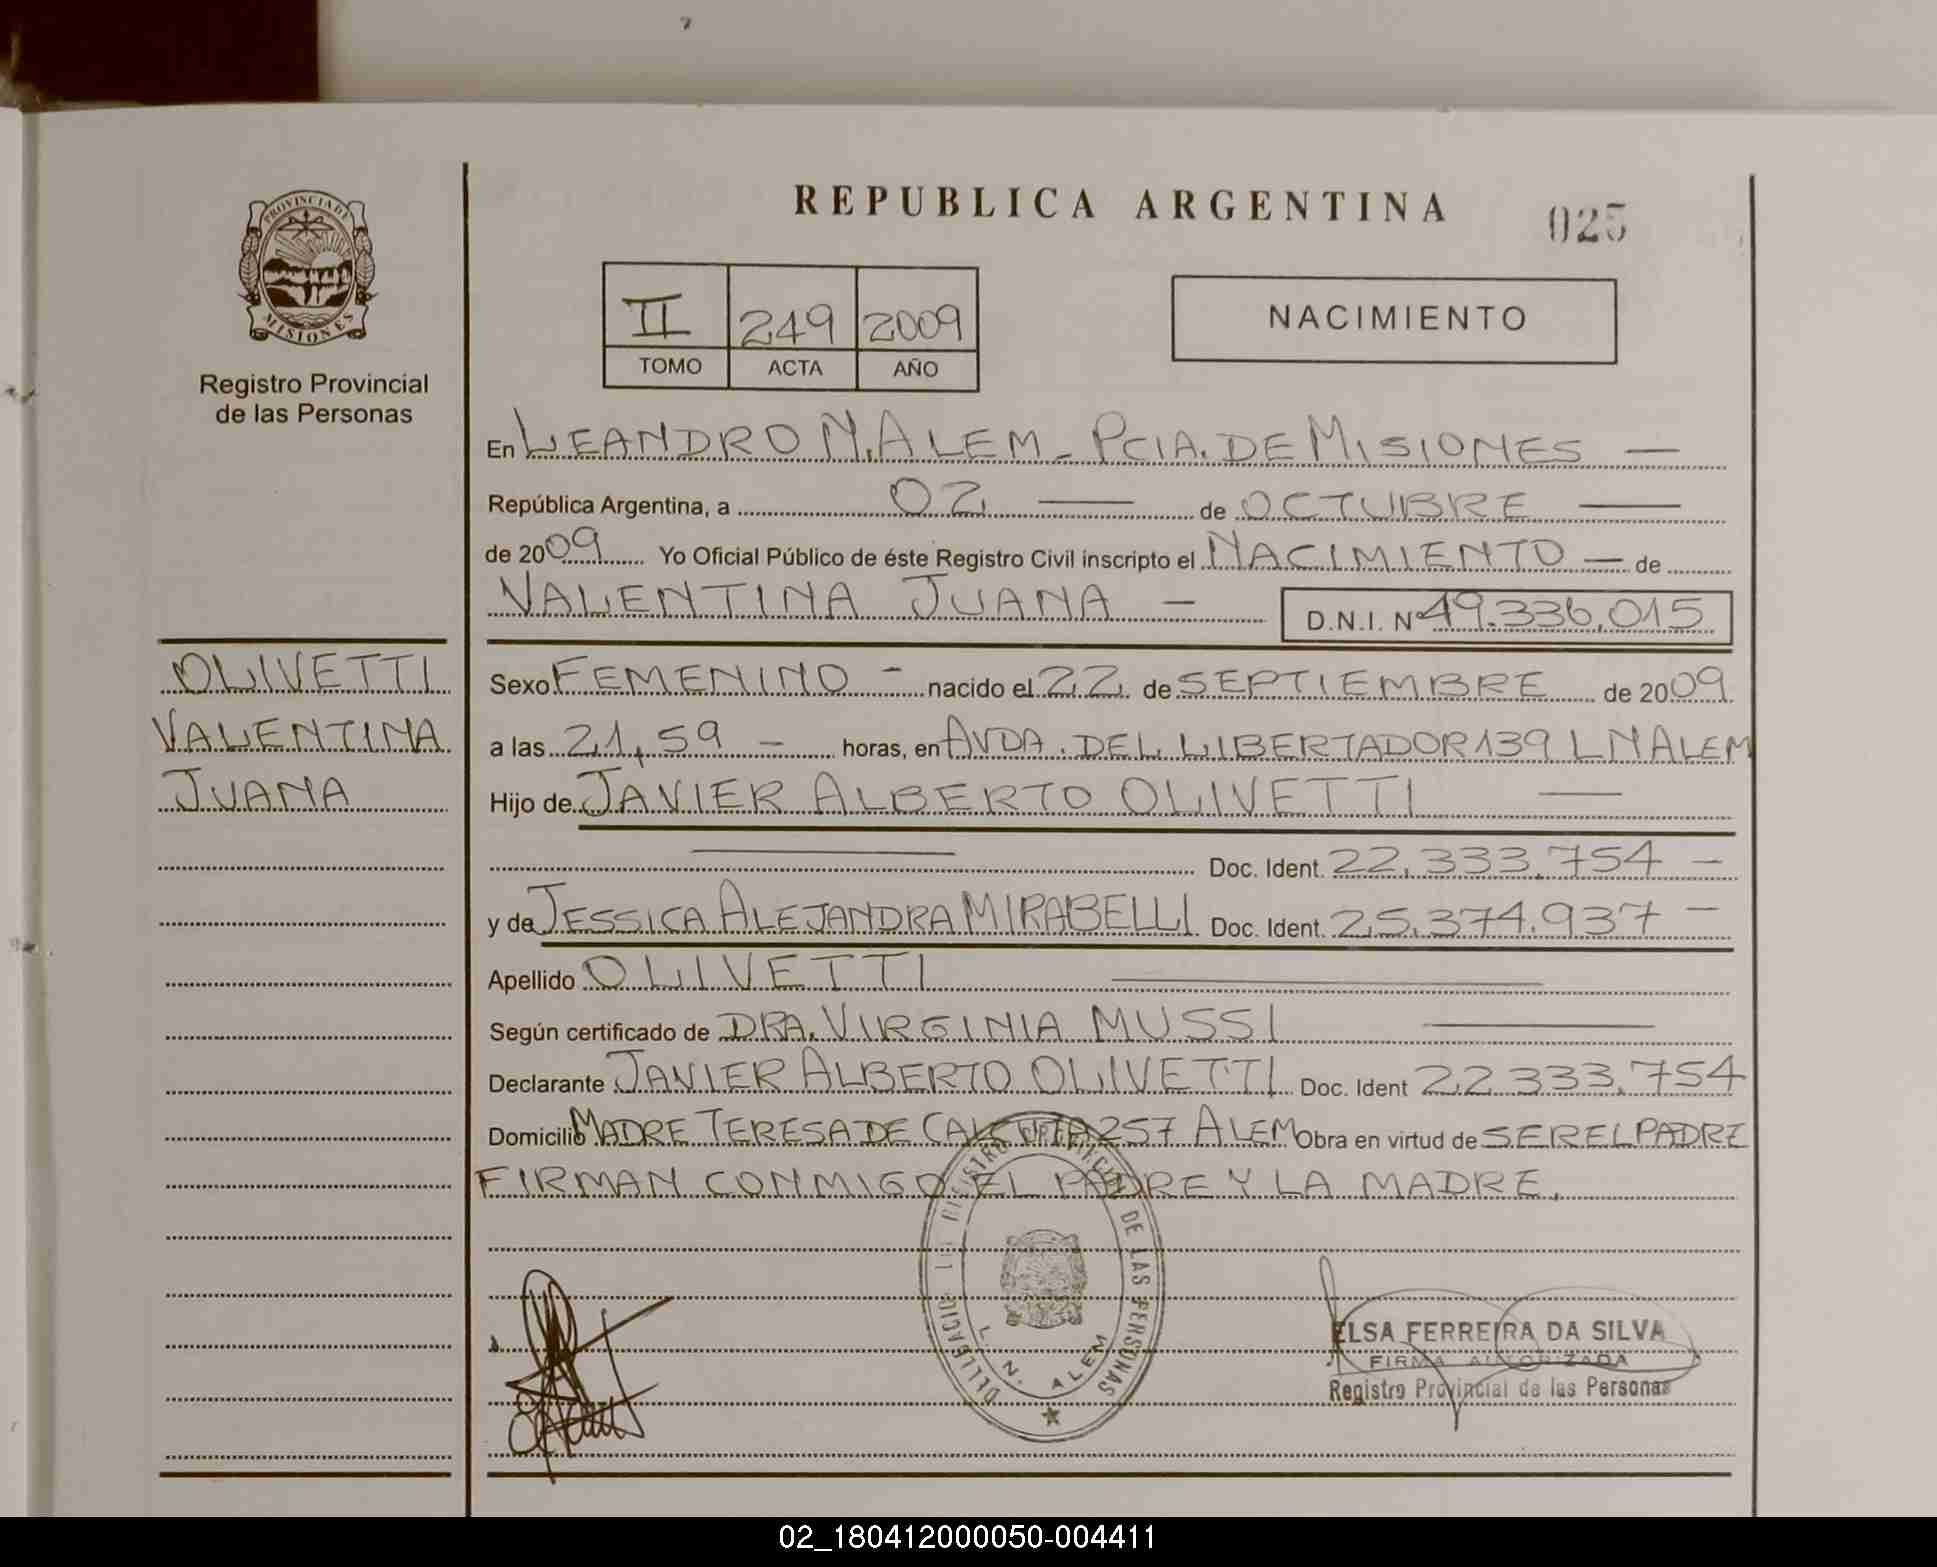 REPUBLICA ARGENTINA
025
PROVINCIA DE
MISIONES
Registro Provincial
de las Personas
II 249 2009
TOMO ACTA AÑO
NACIMIENTO
En LEANDRO N. ALEM - PCIA. DE MISIONES —
República Argentina, a 02 — de OCTUBRE —
de 2009 Yo Oficial Público de éste Registro Civil inscripto el NACIMIENTO — de
VALENTINA JUANA —
D.N.I. Nº 49.336.015
OLIVETTI
VALENTINA
JUANA
Sexo FEMENINO - nacido el 22 de SEPTIEMBRE de 2009
a las 21,59 — horas, en AVDA. DEL LIBERTADOR 139 L N ALEM
Hijo de JAVIER ALBERTO OLIVETTI —
— Doc. Ident. 22.333.754 —
y de JESSICA ALEJANDRA MIRABELLI Doc. Ident. 25.374.937 —
Apellido OLIVETTI —
Según certificado de DRA. VIRGINIA MUSSI —
Declarante JAVIER ALBERTO OLIVETTI Doc. Ident 22.333.754
Domicilio MADRE TERESA DE CALCUTA 257 ALEM Obra en virtud de SER EL PADRE
FIRMAN CONMIGO EL PADRE Y LA MADRE.
REGISTRO PROVINCIAL DE LAS PERSONAS
L. N. ALEM
ELSA FERREIRA DA SILVA
FIRMA AUTORIZADA
Registro Provincial de las Personas
02_180412000050-004411